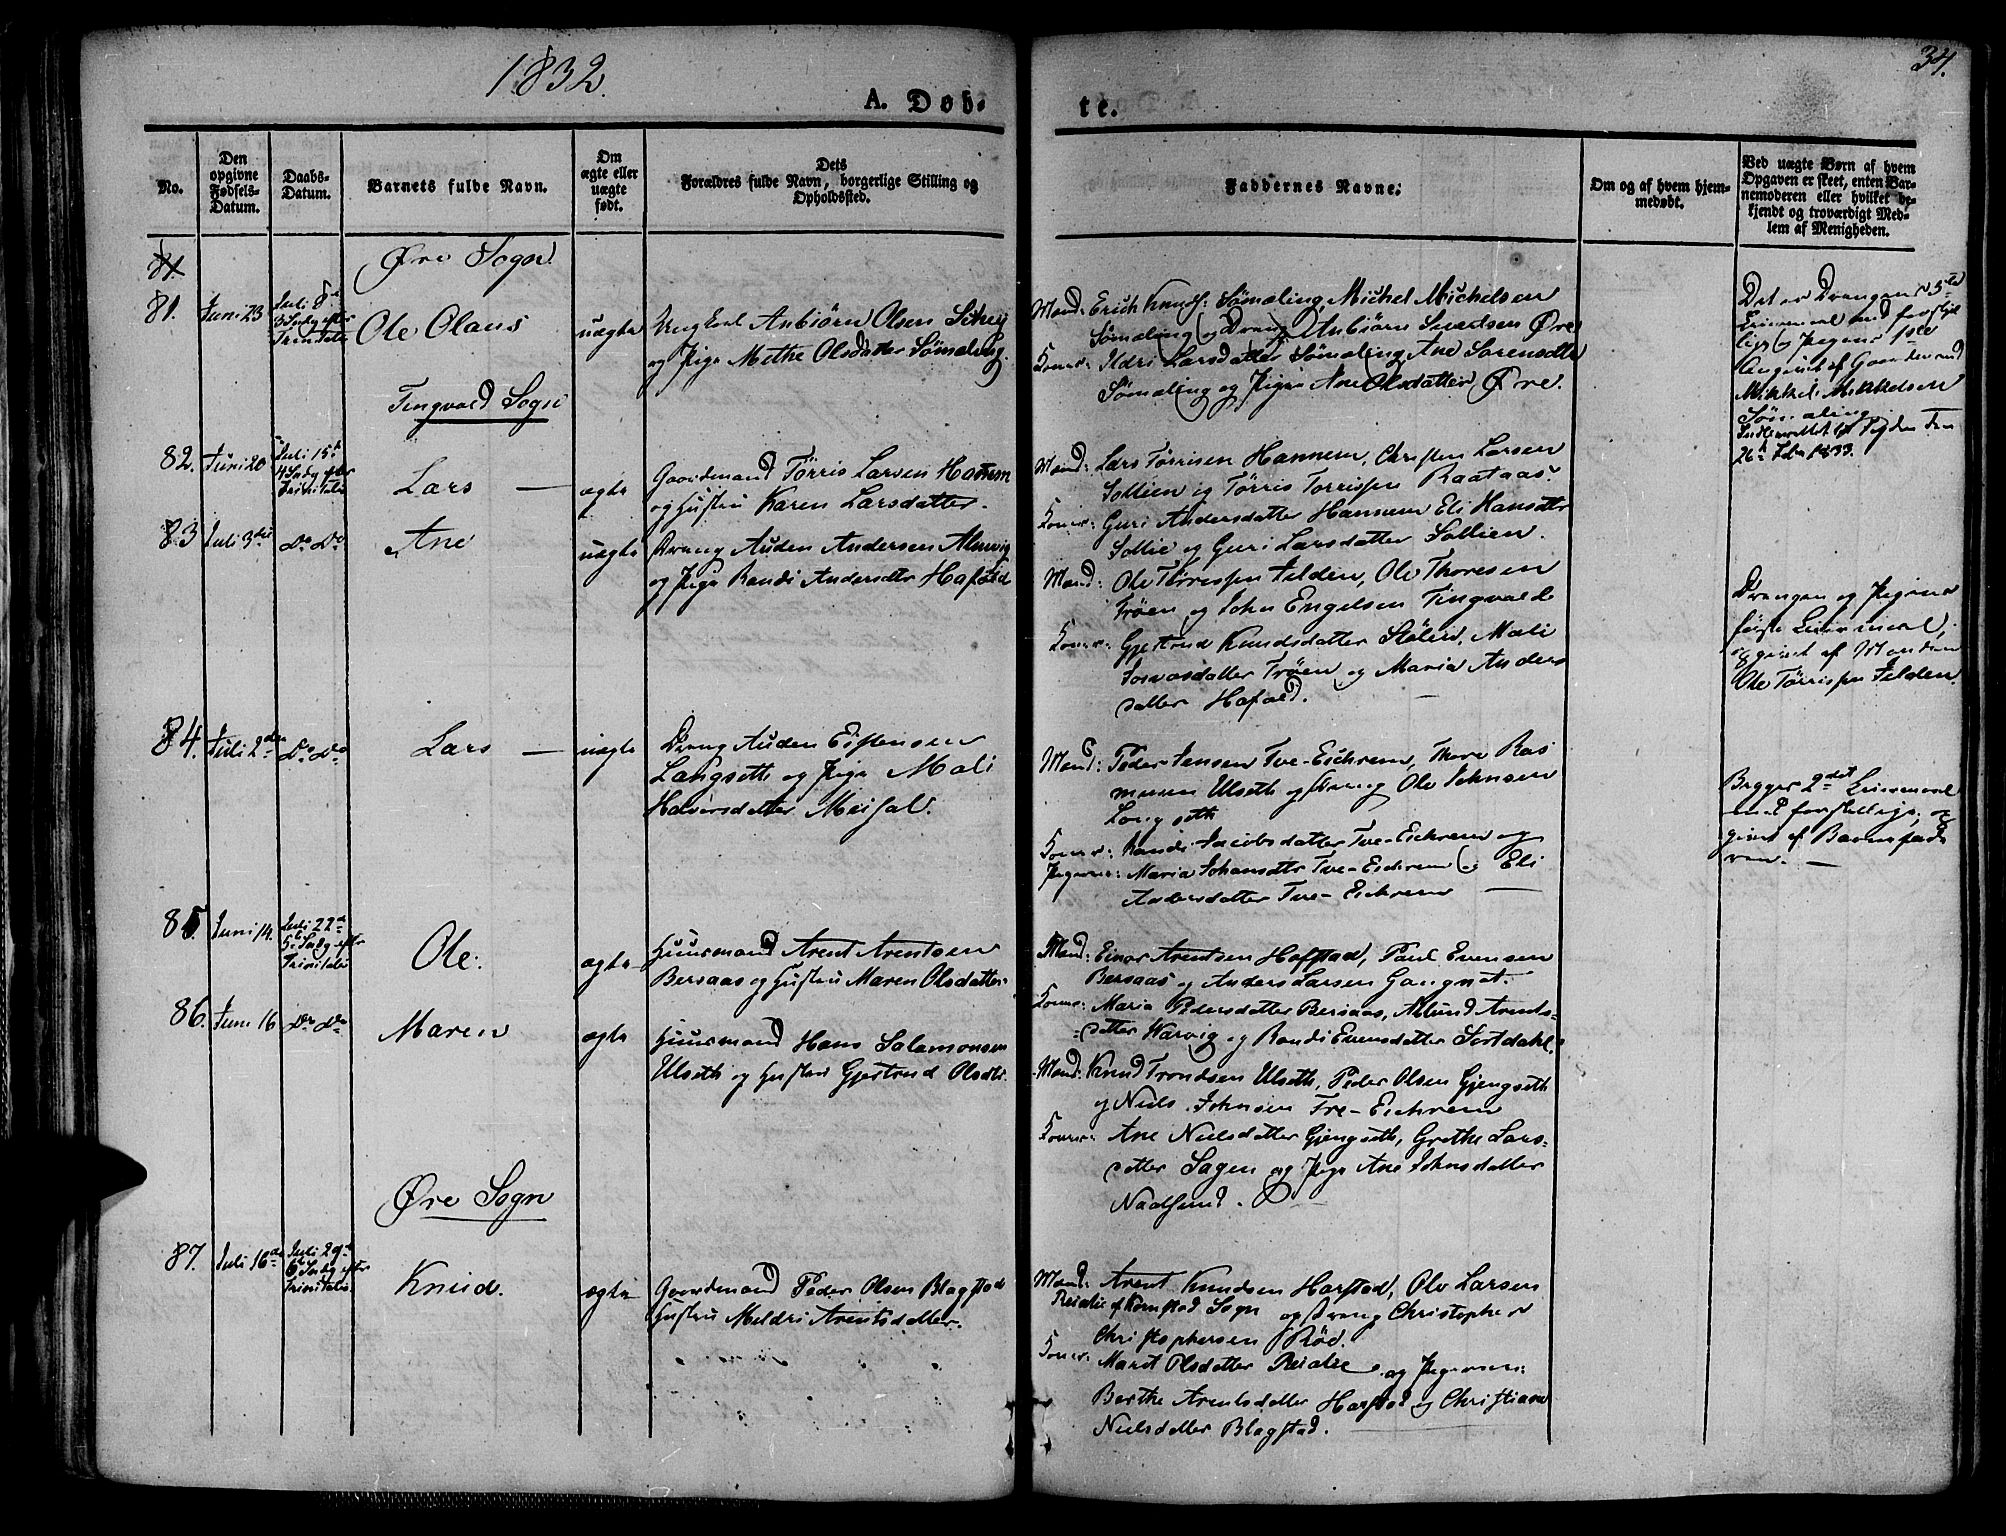 1832.
34.
A. Døb-
te.
No.
Den opgivne Fødsels-Datum.
Daabs-Datum.
Barnets fulde Navn.
Om ægte eller uægte født.
Dets Forældres fulde Navn, borgerlige Stilling og Opholdssted.
Faddernes Navne.
Om og af hvem hjem-medøbt.
Ved uægte Børn af hvem Opgaven er skeet, enten Bar-nemoderen eller hvilket be-kjendt og troværdigt Med-lem af Menigheden.
Øre Sogn
81.
Juni 23
Juli 8de
3 Sndg efter
Trinitatis
Ole Olaus
uægte
Ungkarl Anbiørn Olsen
og Pige Methe Olsdatter Sømæling
Mænd: Erich Knuds: Sømæling, Michel Michelsen
Sømæling og Dreng Anbiørn Sivertsen Øre
Koner: Ildri Larsdatter Sømæling, Ane Sørensdtr
Sømæling og Pige Ane Olsdatter, Øre.
Det er Drengens 5te
Leiermaal og Pigens 1ste
Angivet af Gaardmand
Mikkel Mikkelsen
Sømæling
26de Febr 1833.
Tingvold Sogn
82.
Juni 20
Juli 15de
4 Sndg efter
Trinitatis
Lars —
ægte
Gaardmand Tørris Larsen Hannem
og Hustru Karen Larsdatter.
Mænd: Lars Tørrisen Hannem, Christen Larsen
Sollien og Tørris Torrissen Raataas.
Koner: Guri Andersdatter Hannem Eli Hansdtr
Sollie og Guri Larsdatter Sollien.
83
Juli 3die
Do Do
Ane
uægte
Dreng Auden Andersen Almvig
og Pige Randi Andersdtr Hafstad
Mænd: Ole Tørrissen Felden, Ole Thoresen
Trøen og John Engelsen Tingvolde
Koner: Gjertrud Knudsdatter Stølen, Mali
datter Trøen og Maria Anders
datter Hafstad.
Drengen og Pigens
første Leiermaal,
opgivet af Manden
Ole Tørrissen Felden.
84.
Juli 2den
Do Do
Lars —
uægte
Dreng Auden Eistensen
Langseth og Pige Mali
Halvorsdatter Meisal.
Mænd: Peder Jensen Tve-Eichrem, Thore Ras
mussen Ulseth og Dreng Ole Johnsen
Langseth
Koner: Randi Jacobsdatter Tve-Eichrem og
Pigerne: Maria Johansdtr Tve-Eichrem og Eli
Andersdatter Tve-Eichrem —
Begges 2det Leiermaal
med forskjellige, op
givet af Barnefade
ren. —
85.
Juni 14.
Juli 22de
5te Sndg efter
Trinitatis
Ole.
ægte
Huusmand Arent Arentsen
Bersaas og Hustru Maren Olsdatter.
Mænd: Einar Arentsen Hafstad, Paul Evensen
Bersaas og Anders Larsen Gangnat.
Koner: Maria Pedersdatter Bersaas, Arents-
datter Warvig og Randi Evensdatter Sortdahl.
86.
Juni 16
Do Do
Maren
ægte
Huusmand Hans Salamonsen
Ulseth og Hustru Gjertrud Olsdtr.
Mænd: Knud Trondsen Ulseth, Peder Olsen Gjengseth
og Niels Johnsen Tre-Eichrem
Koner: Ane Nielsdatter Gjengseth, Grethe Lars-
datter Sagen og Pige Ane Johnsdatter
Naalsund.
Øre Sogn
87.
Juli 16de
Juli 29de
6te Sndg efter
Trinitatis.
Knud.
ægte
Gaardmand Peder Olsen Blagstad
Hustru Meldri Arentsdatter.
Mænd: Arent Knudsen Harstad, Ole Larsen
Reialie af Kornstad Sogn og Dreng Christopher
Christophersen Rød.
Koner: Marit Olsdatter Reialie og Pigerne:
Berthe Arentsdatter Harstad og Christiane
Nielsdatter Blagstad.